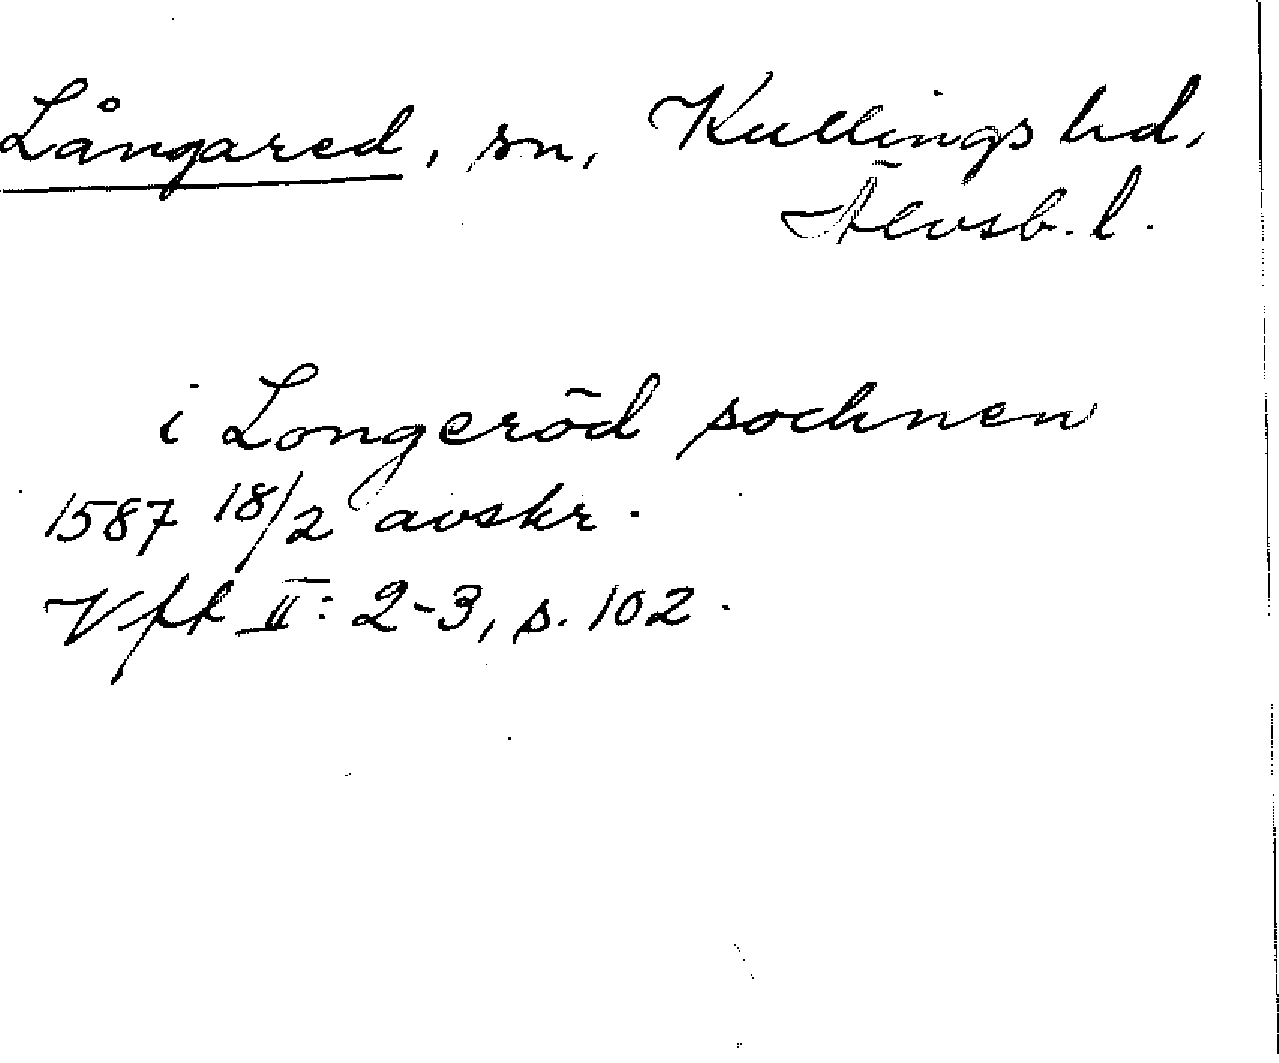 Långared, sn, Kullings hd,
Älvsb. l.
i Longeröd sochnen
1587 18/2 avskr.
Vft II: 2-3, s. 102.